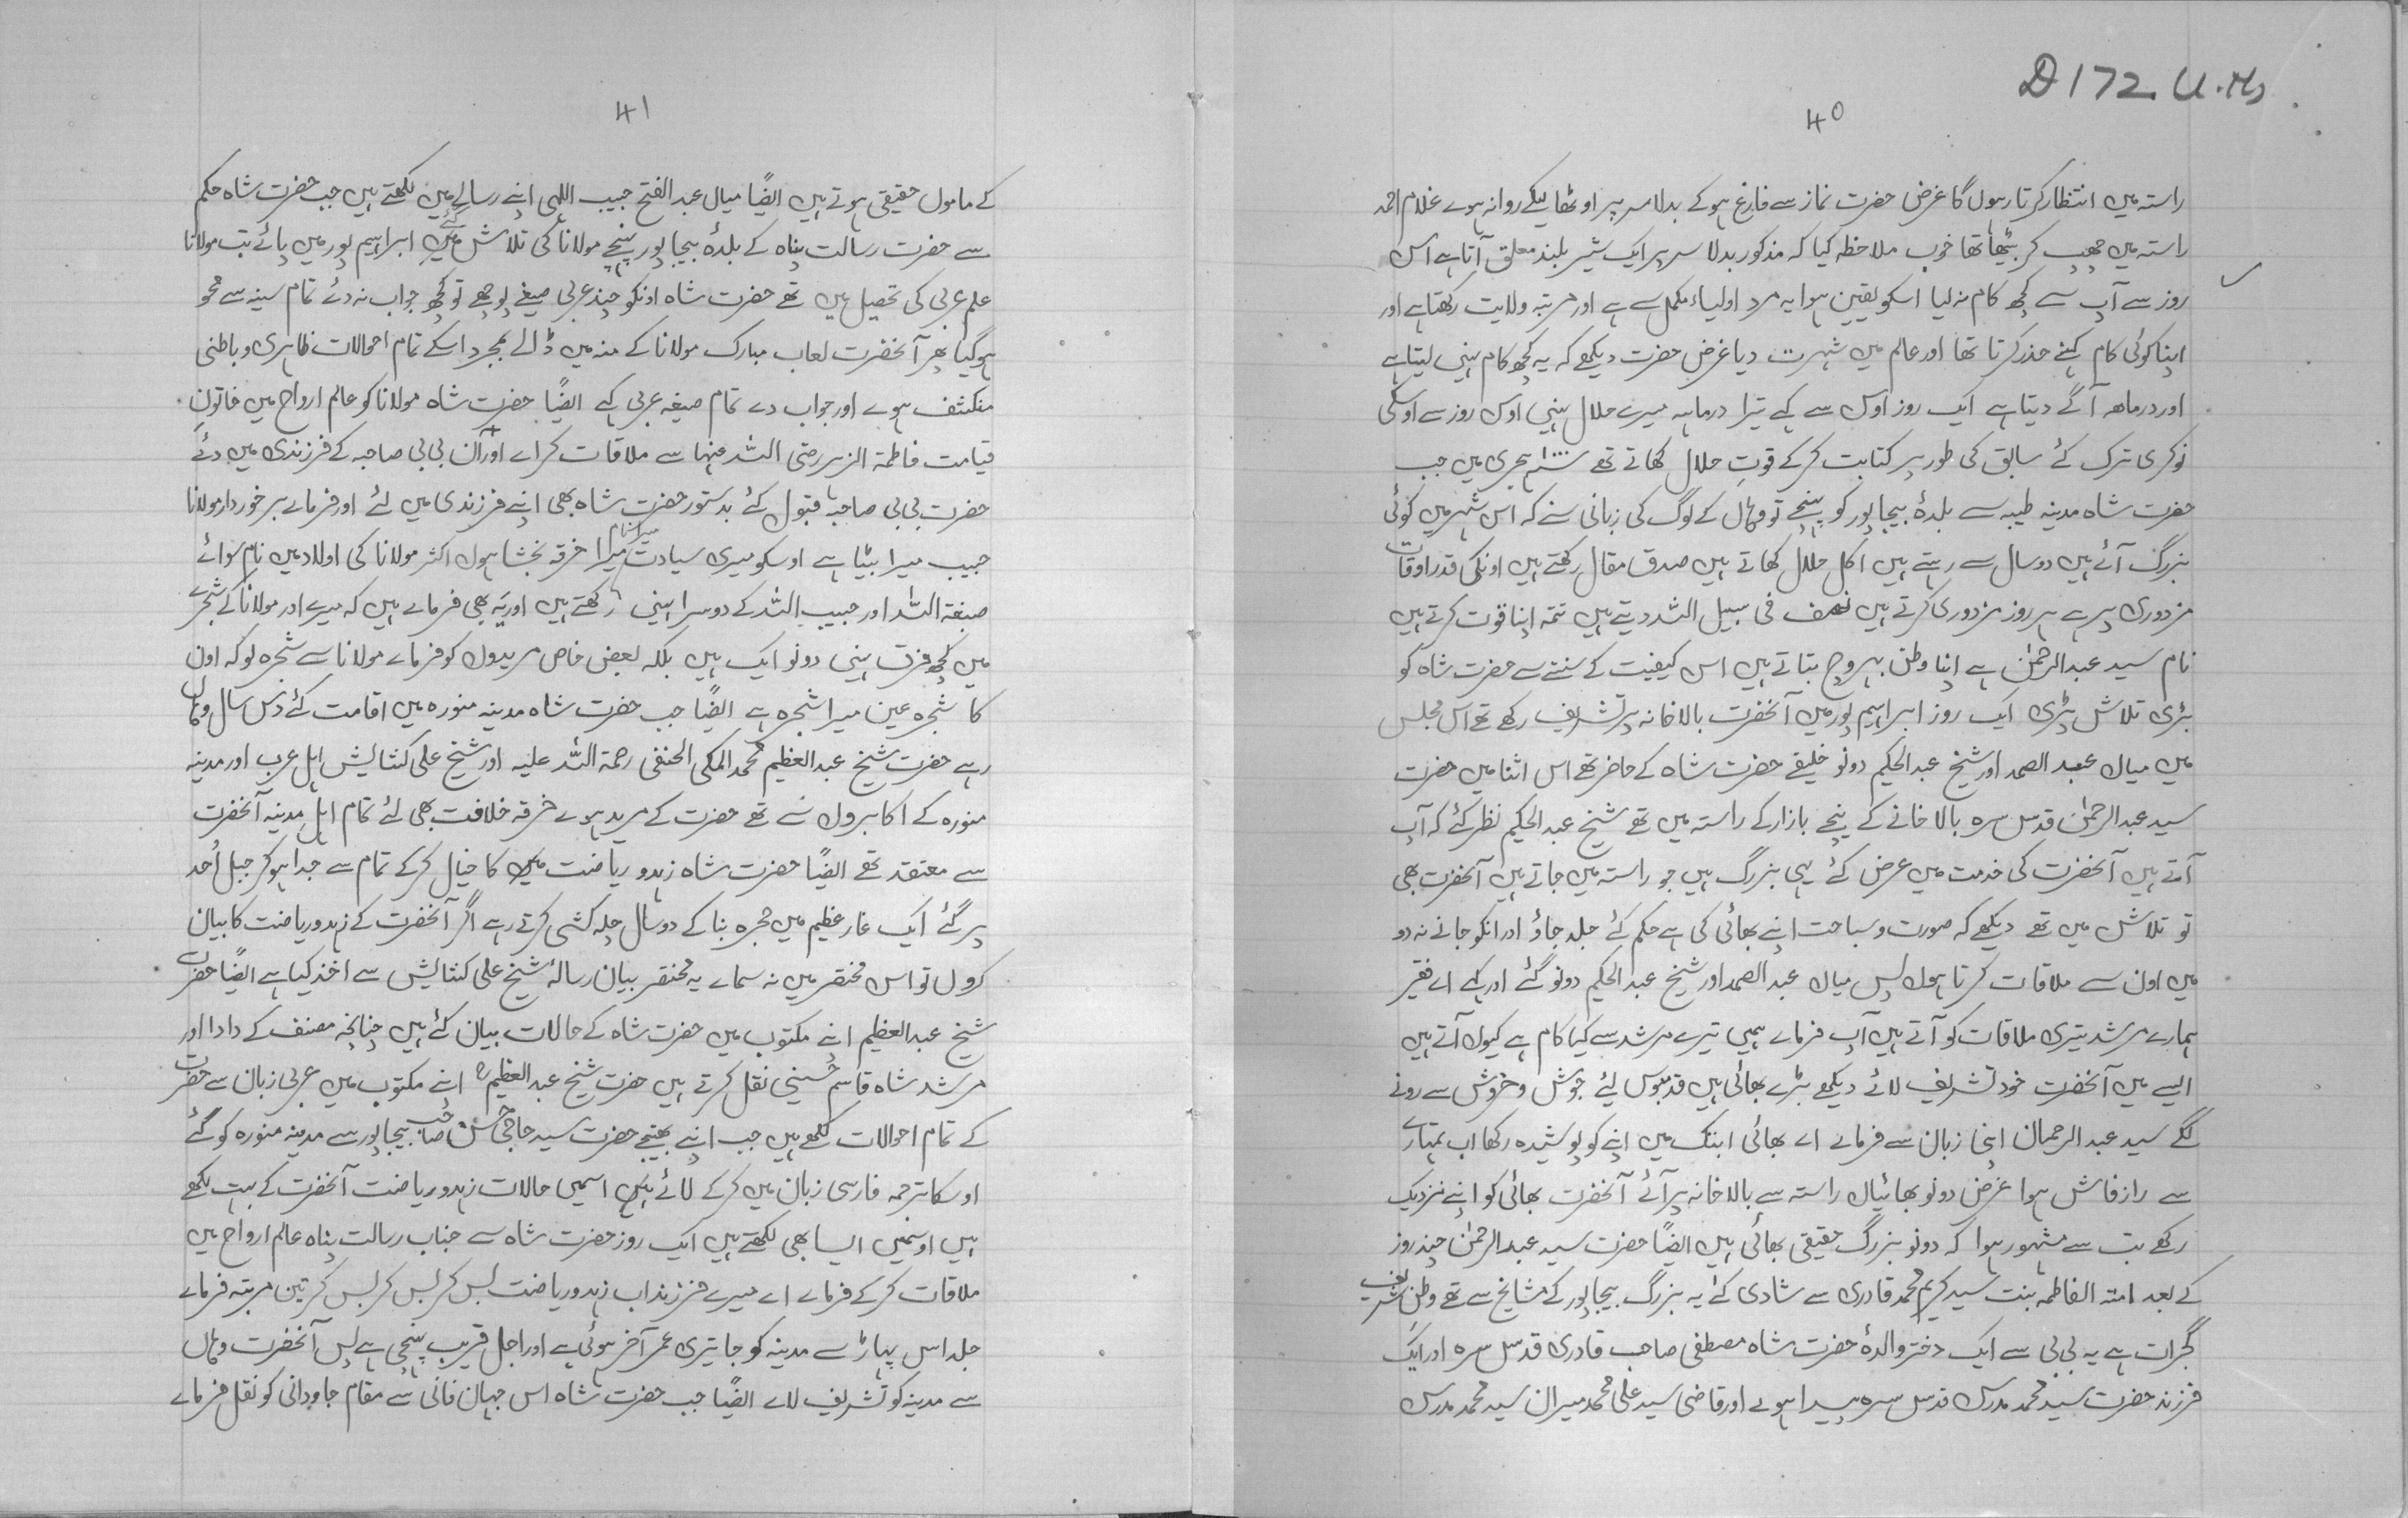 D 172. U. Ms
40
راستہ میں انتظار کرتا رہوں گا غرض حضرت نماز سے فارغ ہو کے بدلا سر پر اوٹھا لیکے روانہ ہوے غلام احمد
راستہ میں چھپ کر بیٹھا تھا خوب ملاحظہ کیا کہ مذکور بدلا سر پر ایک شیر بلند معلق آتا ہے اس
روز سے آپ سے کچھ کام نہ لیا اسکو یقین ہوا یہ مرد اولیاء مکمل سے ہے اور مرتبہ ولایت رکھتا ہے اور
اپنا کوئی کام کہنے حذر کرتا تھا اور عالم میں شہرت دیا غرض حضرت دیکھے کہ یہ کچھ کام نہیں لیتا ہے
اور درماھہ آگے دیتا ہے ایک روز اوس سے کہے تیرا درماہہ میرے حلال نہیں اوس روز سے اوسکی
نوکری ترک کئے سابق کی طور پر کتابت کر کے قوتِ حلال کھاتے تھے ہجری میں جب
حضرت شاہ مدینہ طیبہ سے بلدۂ بیجاپور کو پہنچے تو وہاں کے لوگ کی زبانی سنے کہ اس شہر میں کوئی
بزرگ آئے ہیں دو سال سے رہتے ہیں اکل حلال کھاتے ہیں صدق مقال رکھتے ہیں اونکی قدر اوقات
مزدوری پر ہے ہر روز مزدوری کرتے ہیں نصف فی سبیل اللہ دیتے ہیں تتمہ اپنا قوت کرتے ہیں
نام سید عبدالرحمٰن ہے اپنا وطن بہروچ بتاتے ہیں اس کیفیت کے سنتے سے حضرت شاہ کو
بڑی تلاش پڑی ایک روز ابراہیم پور میں آنحضرت بالاخانہ پر تشریف رکھے تھے اس مجلس
میں میاں عبد الصمد اور شیخ عبد الحکیم دونو خلیفے حضرت شاہ کے حاضر تھے اس اثنا میں حضرت
سید عبدالرحمٰن قدس سرہ بالاخانے کے نیچے بازار کے راستہ میں تھے شیخ عبد الحکیم نظر کئے کہ آپ
آتے ہیں آنحضرت کی خدمت میں عرض کئے یہی بزرگ ہیں جو راستہ میں جاتے ہیں آنحضرت بھی
تو تلاش میں تھے دیکھے کہ صورت و سباحت اپنے بھائی کی ہے حکم کئے جلد جاؤ اور انکو جانے نہ دو
میں اون سے ملاقات کرتا ہوں پس میاں عبد الصمد اور شیخ عبد الحکیم دونو گئے اور کہے اے فقیر
ہمارے مرشد تیری ملاقات کو آتے ہیں آپ فرمائے ہمیں تیرے مرشد سے کیا کام ہے کیوں آتے ہیں
ایسے میں آنحضرت خود تشریف لائے دیکھے بڑے بھائی ہیں قدمبوس لئے جوش و خروش سے رونے
لگے سید عبد الرحمان اپنی زبان سے فرمائے اے بھائی ابتک میں اپنے کو پوشیدہ رکھا اب تمہارے
سے راز فاش ہوا غرض دونو بھائیاں راستہ سے بالاخانہ پر آئے آنحضرت بھائی کو اپنے نزدیک
رکھے تب سے مشہور ہوا کہ دونو بزرگ حقیقی بھائی ہیں ایضًا حضرت سید عبدالرحمٰن چند روز
کے بعد امتہ الفاطمہ بنت سید کریم محمد قادری سے شادی کئے یہ بزرگ بیجاپور کے مشایخ سے تھے وطن شریف
گجرات ہے یہ بی بی سے ایک دختر والدۂ حضرت شاہ مصطفی صاحب قادری قدس سرہ اور ایک
فرزند حضرت سید محمد مدرس قدس سرہ پیدا ہوے اور قاضی سید علی محمد میران سید محمد مدرس
41
کے ماموں حقیقی ہوتے ہیں ایضًا میاں عبد الفتح حبیب اللہی اپنے رسالے میں لکھتے ہیں جب حضرت شاہ حکم
سے حضرت رسالت پناہ کے بلدۂ بیجاپور پہنچے مولانا کی تلاش کئے ابراہیم پور میں پائے تب مولانا
علم عربی کی تحصیل میں تھے حضرت شاہ اونکو چند عربی صیغے پوچھے تو کچھ جواب نہ دئے تمام سینہ سے محو
ہو گیا پھر آنحضرت لعاب مبارک مولانا کے منہ میں ڈالے بمجرد اسکے تمام احوالات ظاہری و باطنی
منکشف ہوے اور جواب دے تمام صیغہ عربی کہے ایضًا حضرت شاہ مولانا کو عالم ارواح میں خاتونِ
قیامت فاطمۃ الزہر رضی اللہ عنہا سے ملاقات کراے اور آن بی بی صاحبہ کے فرزندی میں دئے
حضرت بی بی صاحبہ قبول کئے بدستور حضرت شاہ بھی اپنے فرزندی میں لئے اور فرمائے برخوردار مولانا
حبیب میرا بیٹا ہے اوسکو میری سیادت میرا نام میرا خرقہ بخشا ہوں اکثر مولانا کی اولاد میں نام سوائے
صبغۃ اللہ اور حبیب اللہ کے دوسرا نہیں رکھتے ہیں اور یہ بھی فرماے ہیں کہ میرے اور مولانا کے شجرے
میں کچھ فرق نہیں دونو ایک ہیں بلکہ بعض خاص مریدوں کو فرمائے مولانا سے شجرہ لو کہ اون
کا شجرہ عین میرا شجرہ ہے ایضًا جب حضرت شاہ مدینہ منورہ میں اقامت کئے دس سال وہاں
رہے حضرت شیخ عبد العظیم محمد المکی الحنفی رحمۃ اللہ علیہ اور شیخ علی کشایش اہل عرب اور مدینہ
منورہ کے اکابروں سے تھے حضرت کے مرید ہوے خرقہ خلافت بھی لئے تمام اہلِ مدینہ آنحضرت
سے معتقد تھے ایضًا حضرت شاہ زہد و ریاضت کا خیال کر کے تمام سے جدا ہو کر جبل اُحد
پر گئے ایک غار عظیم میں حجرہ بنا کے دو سال چلہ کشی کرتے رہے اگر آنحضرت کے زہد و ریاضت کا بیان
کروں تو اس مختصر میں نہ سماے یہ مختصر بیان رسالۂ شیخ علی کشایش سے اخذ کیا ہے ایضًا حضرت
شیخ عبد العظیم اپنے مکتوب میں حضرت شاہ کے حالات بیان کئے ہیں چنانچہ مصنف کے دادا اور
مرشد شاہ قاسم حُسینی نقل کرتے ہیں حضرت شیخ عبد العظیمؒ اپنے مکتوب میں عربی زبان سے حضرت
کے تمام احوالات لکھے ہیں جب اپنے بھتیجے حضرت سید حاجی حسن صاحب بیجاپور سے مدینہ منورہ کو گئے
اوسکا ترجمہ فارسی زبان میں کر کے لائے ہیں اسمیں حالات زہد و ریاضت آنحضرت کے بہت لکھے
ہیں اوسمیں ایسا بھی لکھتے ہیں ایک روز حضرت شاہ سے جناب رسالت پناہ عالم ارواح میں
ملاقات کر کے فرمائے اے میرے فرزند اب زہد و ریاضت بس کر بس کر بس کر تین مرتبہ فرمائے
جلد اس پہاڑ سے مدینہ کو جا تیری عمر آخر ہوئی ہے اور اجل قریب پہنچی ہے پس آنحضرت وہاں
سے مدینہ کو تشریف لاے ایضًا جب حضرت شاہ اس جہان فانی سے مقام جاودانی کو نقل فرمائے